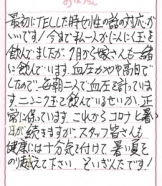 最初にTELした時の女性の話の対応が
いいです！今まで私一人がにんにく玉を
飲んでましたが、9月から家さんも一緒
に飲んでいます。血圧がやや高目で
したので、毎朝二人で血圧を計っていま
す。ニンニク玉を飲んでいるせいか、正
常に保っています。これからコロナと暑い
日が続きますが、スタッフ皆さん
健康には十分気を付けて、暑い夏を
のり越えて下さい。といざんたです！